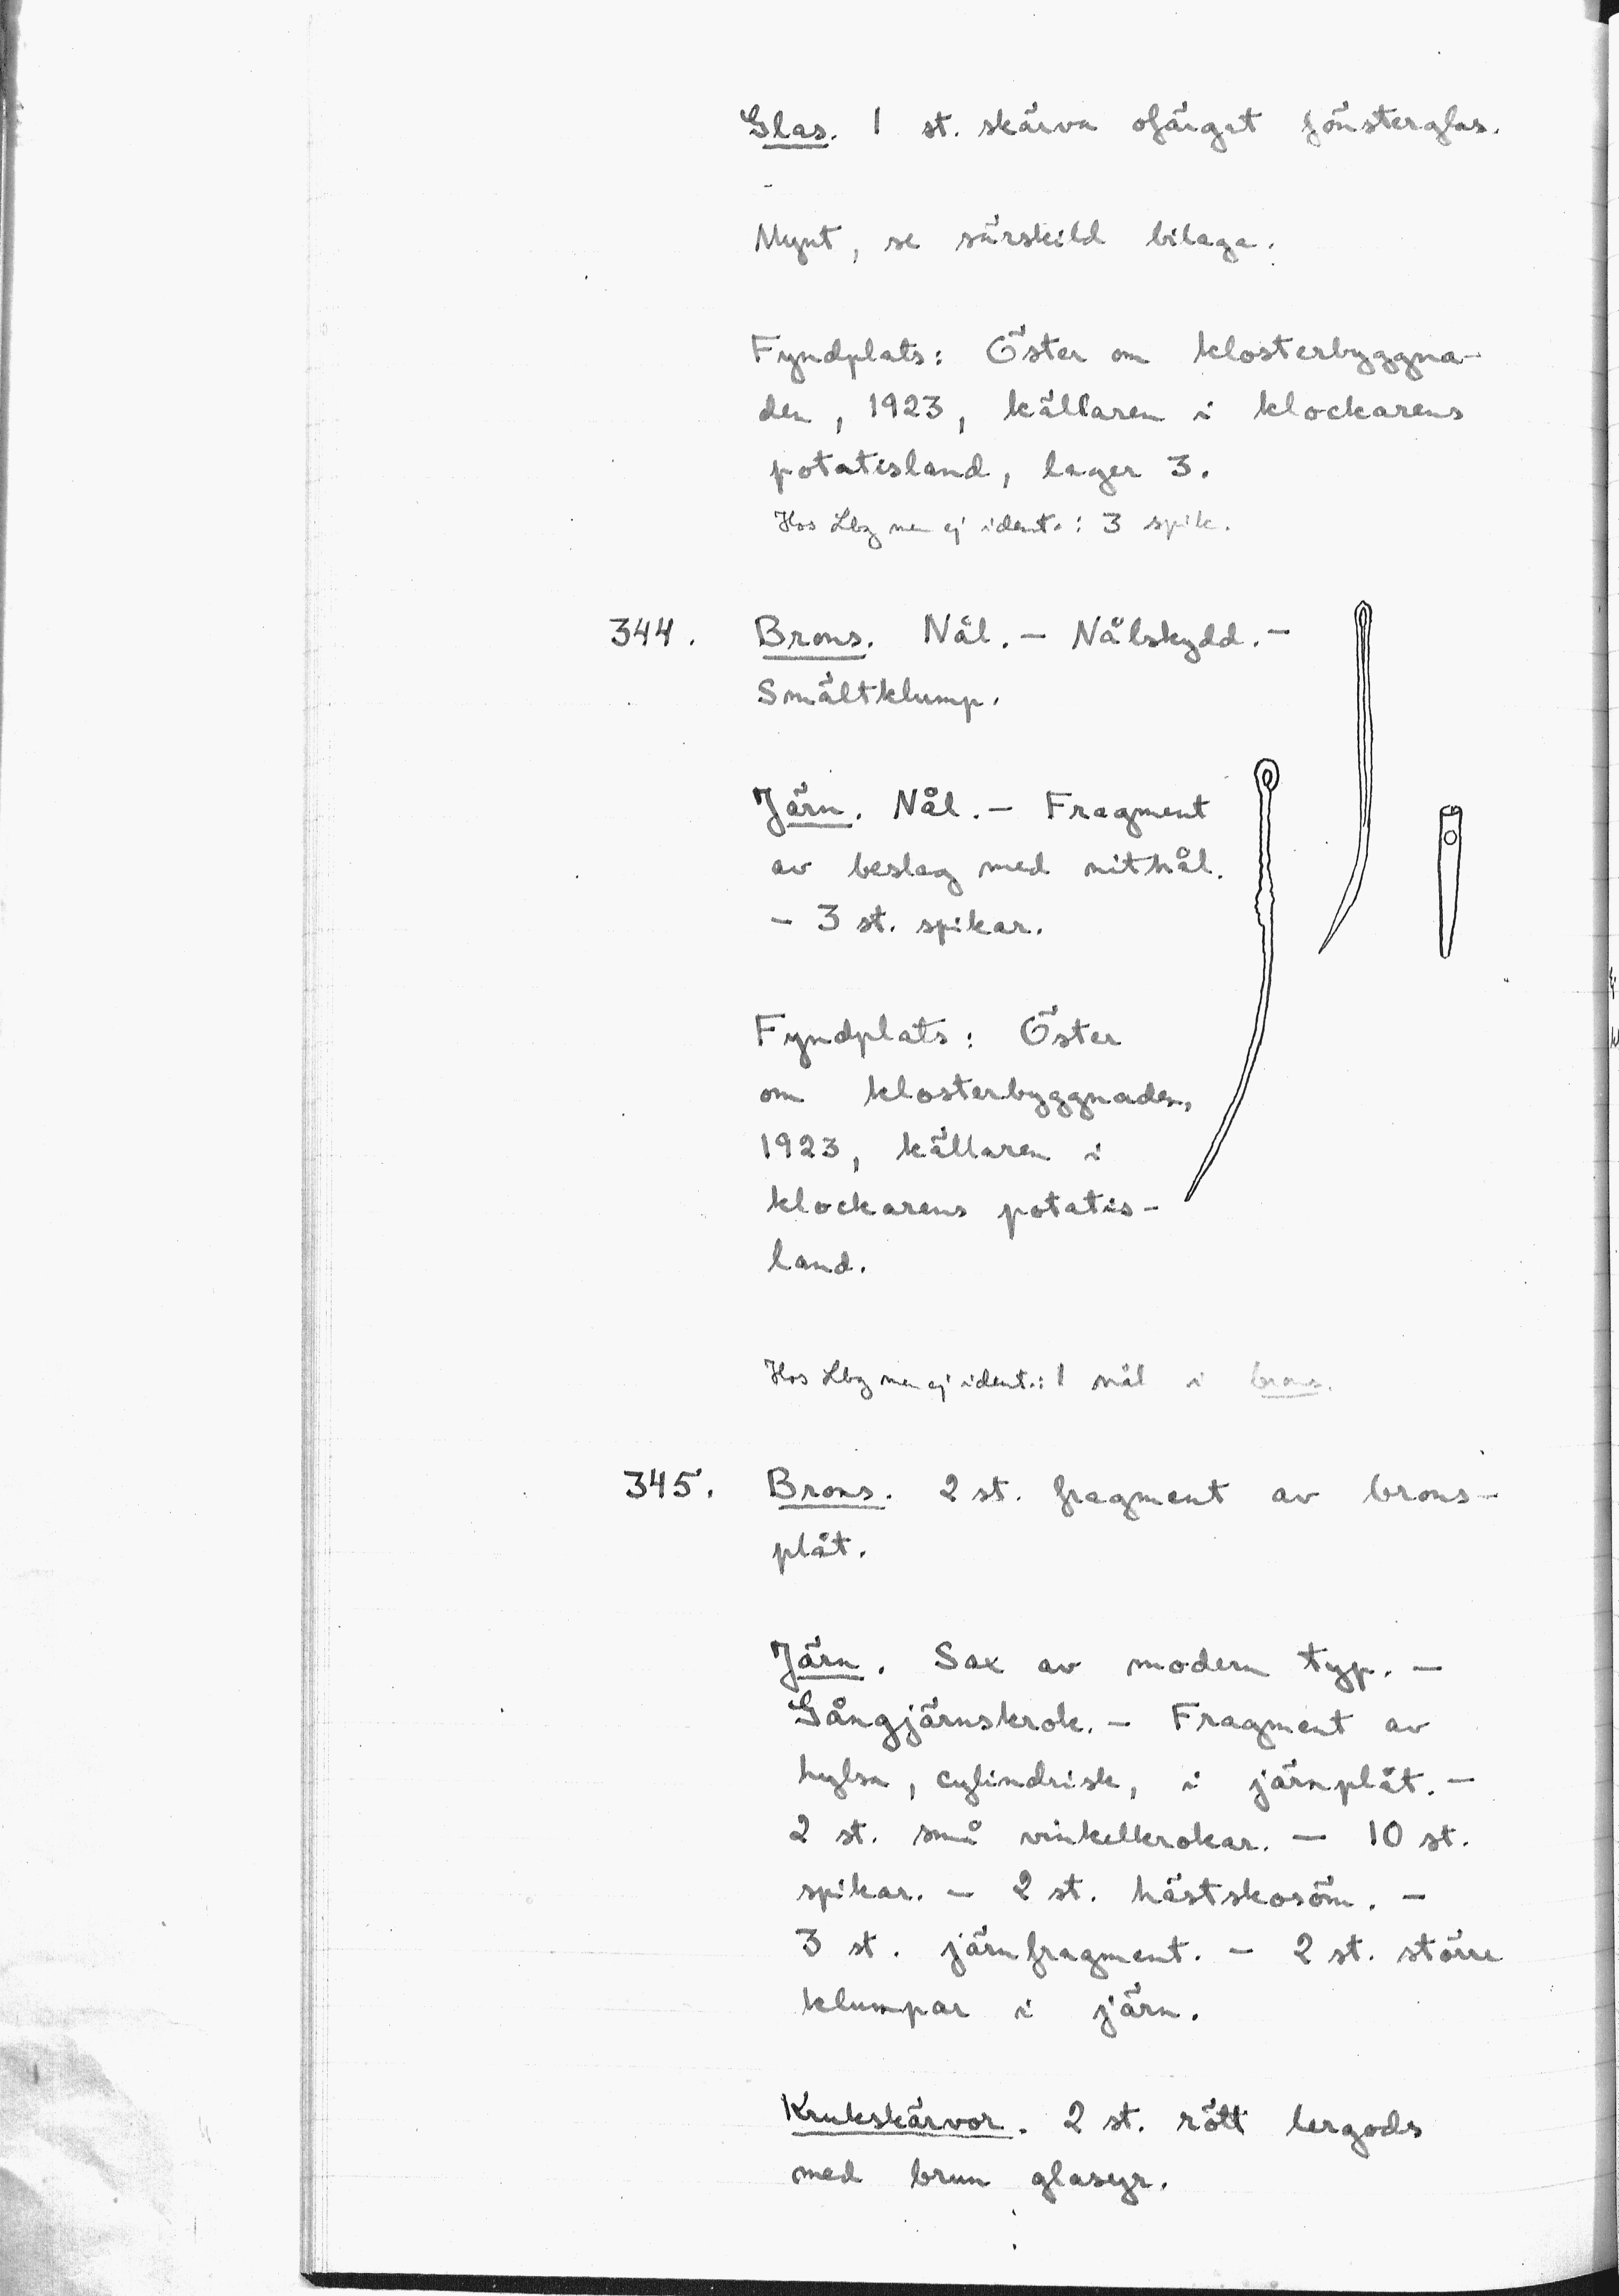 Glas. 1 st. skärva ofärgat fönsterglas.
Mynt, se särskild bilaga.
Fyndplats: Öster om klosterbyggna-
den, 1923, källaren i klockarens
potatisland, lager 3.
Hos Lbg men ej ident.: 3 spik.
344. Brons. Nål. — Nålskydd. —
Smältklump.
Järn. Nål. — Fragment
av beslag med nithål.
— 3 st. spikar.
Fyndplats: Öster
om klosterbyggnaden,
1923, källaren i
klockarens potatis-
land.
Hos Lbg men ej ident.: 1 nål i brons.
345. Brons. 2 st. fragment av brons-
plåt.
Järn. Sax av modern typ. —
Gångjärnskrok. — Fragment av
hylsa, cylindrisk, i järnplåt. —
2 st. små vinkelkrokar. — 10 st.
spikar. — 2 st. hästskosöm. —
3 st. järnfragment. — 2 st. större
klumpar i järn.
Krukskärvor. 2 st. rött lergods
med brun glasyr.